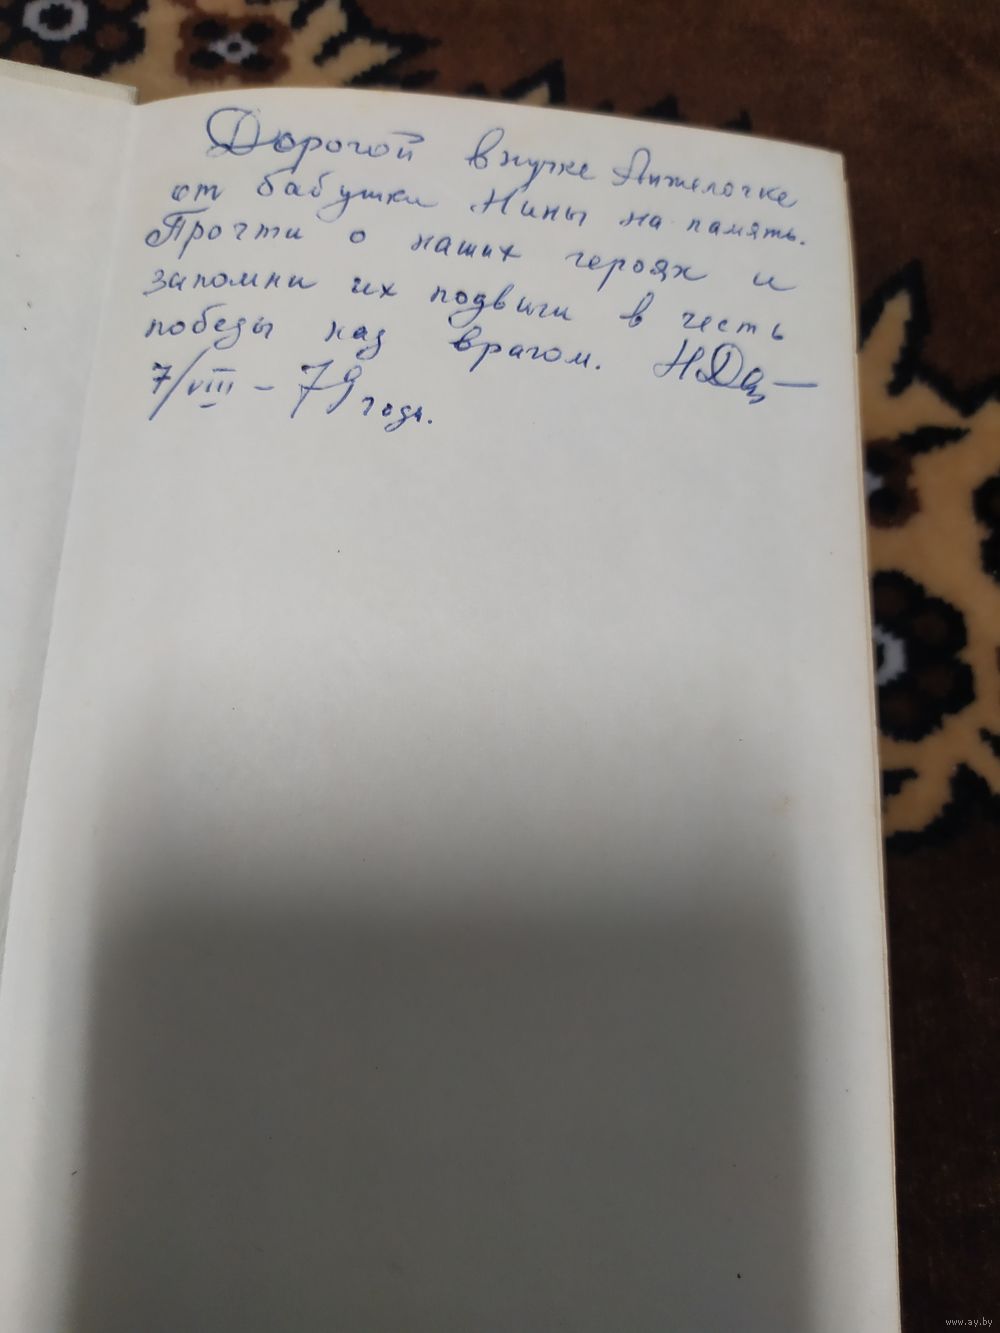 Дорогой внучке Анжелочке
от бабушки Нины на память.
Прочти о наших героях и
запомни их подвиги в честь
победы над врагом.
7/VIII – 79 года.
www.ay.by